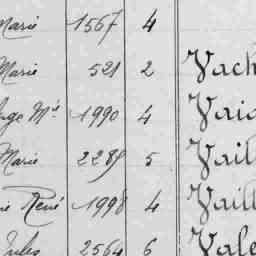 Marie 1567 4
Marie 521 2 Vach
Mie 1990 4 Vai
Marie 2289 5 Vail
René 1998 4 Vaill
Jules 2564 6 Vale